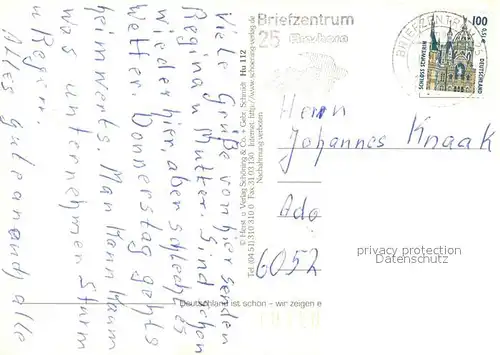 Viele Grüße von hier senden
Regina u Mutter. Sind schon
wieder hier aber schlechtes
Wetter Donnerstag gehts
heimwerts Man kann kaum
was unternehmen Sturm
u Regen.
Alles gute an euch alle
© Herst. u. Verlag Schöning & Co. + Gebr. Schmidt Hu 112
Tel. (0451) 310 310 Fax 31 03 130 Internet: http://www.schoening-verlag.de
Nachahmung verboten
Deutschland ist schön – wir zeigen e
Briefzentrum
25
BRIEFZENTRUM
100
0,51€
SCHLOSS SCHWERIN
DEUTSCHLAND
Herrn
Johannes Knaak
Ado
6052
privacy protection
Datenschutz